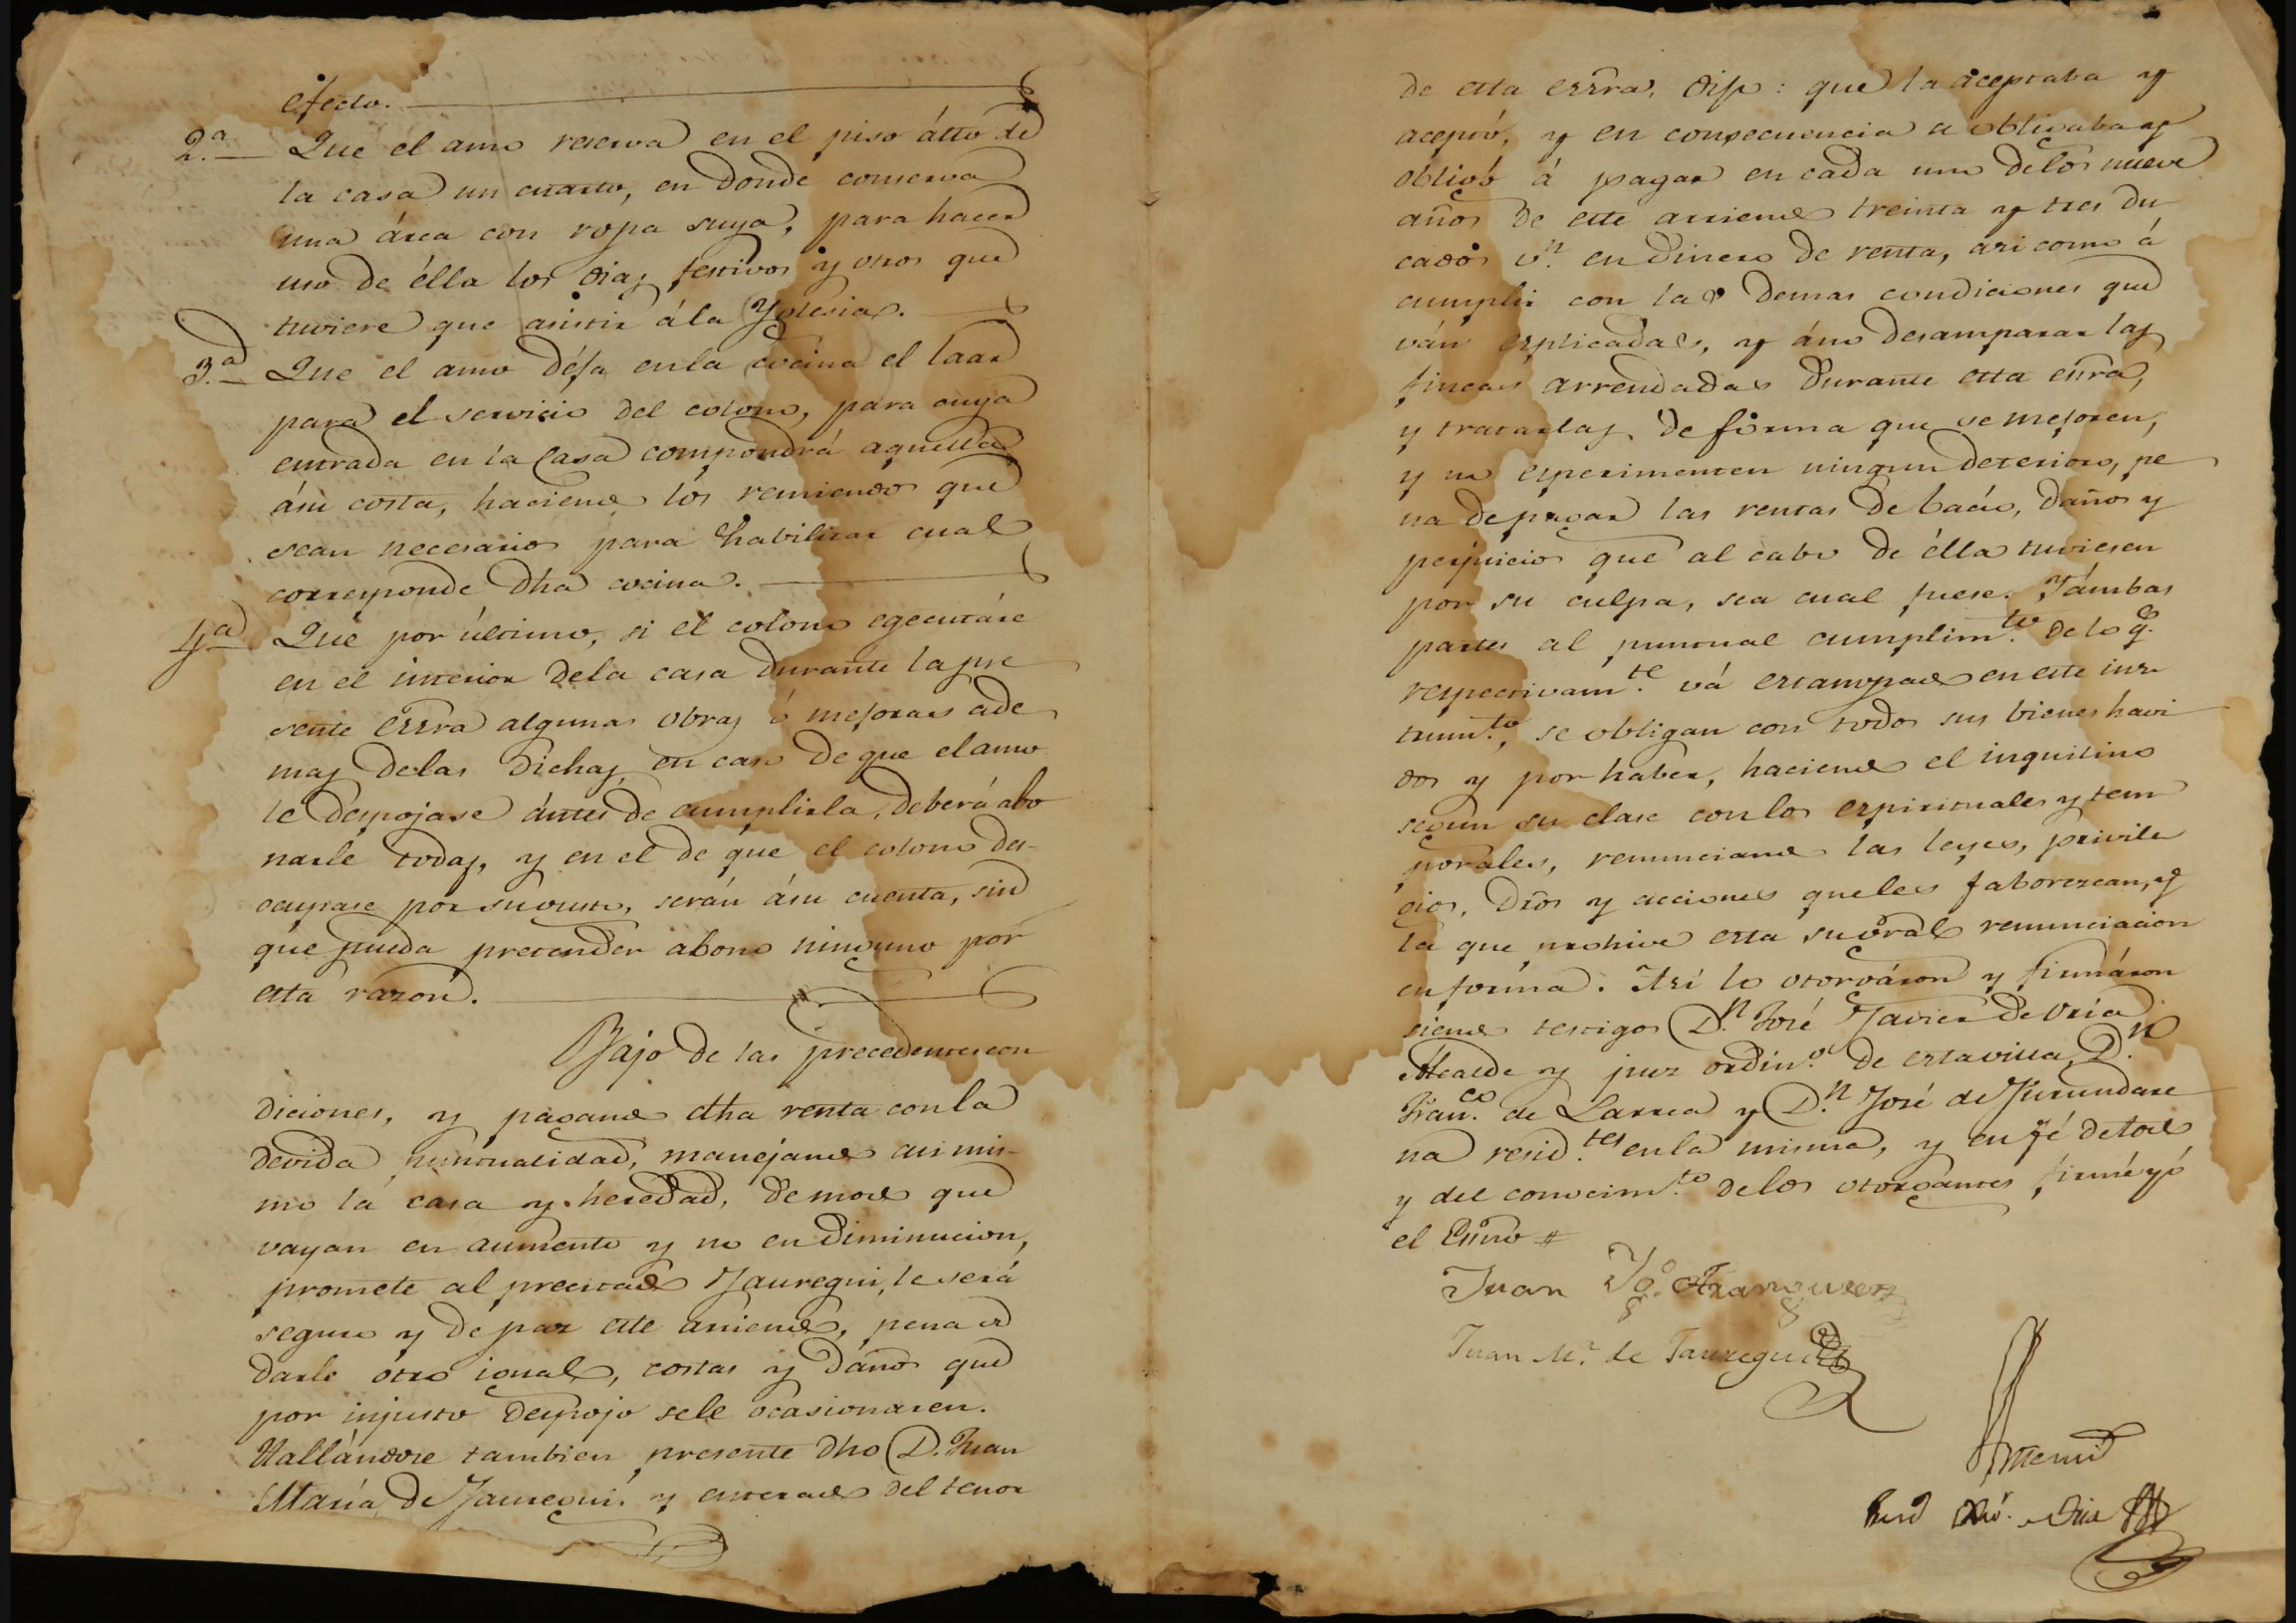 efecto.
2.a Que el amo reserva en el piso álto de
la casa un cuarto, en donde conserva
una área con ropa suya, para hacer
uso de élla los dias festivos y otros que
tuviere que asistir ála Yglesia.
3.a Que el amo déja enla cocina el laar
para el servicio del colono, para cuya
entrada en la Casa compondrá aquella
ásu costa, haciendo los remiendos que
sean necesarios para habilitar cual
corresponde dha cocina.
4.a Que por último, si el colono egecutáre
en el interior dela casa durante la pre
sente essra algunas obras ó mejoras ade
mas delas dichas, en caso de que el amo
le despojase ántes de cumplirla, deberá abo
narle todas, y en el de que el colono des-
ocupase por su gusto, serán ásu cuenta, sin
que pueda pretender abono ninguno por
esta razon.
Bajo de las precedentes con
diciones, y pagando dha renta con la
devida puntualidad, manejando asi mis-
mo la casa y heredad, de modo que
vayan en aumento y no en diminucion,
promete al precitado Jauregui, le será
seguro y de paz este arriendo, pena de
darle otro igual, costas y daños que
por injusto despojo sele ocasionaren.
Hallándose tambien presente dho D. Juan
María de Jauregui y enterado del tenor
de esta essra, dijo: que la aceptaba y
aceptó, y en consecuencia se obligaba y
obligó á pagar en cada uno delos nueve
años de este arriendo treinta y tres du-
cados v.n en dinero de renta, asi como á
cumplir con las demas condiciones que
ván esplicadas, y áno desamparar las
fincas arrendadas durante esta essra,
y tratarlas de forma que se mejoren,
y no esperimenten ningun deterioro, pe
na de pagar las rentas de bacío, daños y
perjuicios que al cabo de élla tuviesen
por su culpa, sea cual fuese. Yámbas
partes al puntual cumplim.to de lo q.e
respectivam.te vá estampado en este ins-
trum.to, se obligan con todos sus bienes havi
dos y por haber, haciendo el inquilino
segun su clase con los espirituales y tem
porales, renunciando las leyes, privile
gios, dros y acciones queles faborezcan, y
la que prohive esta su gral renunciacion
en forma. Así lo otorgáron y firmáron
siendo testigos D.n José Javier de Uria
Alcalde y juez ordin.o de esta villa, D.n
Fran.co de Larrea y D.n José de Yurrundare
na resid.tes en la misma, y en fé de todo
y del conocim.to delos otorgantes firmé yó
el Essno #
Juan Yg.o Aranguren
Juan M.a de Jauregui
Antemi